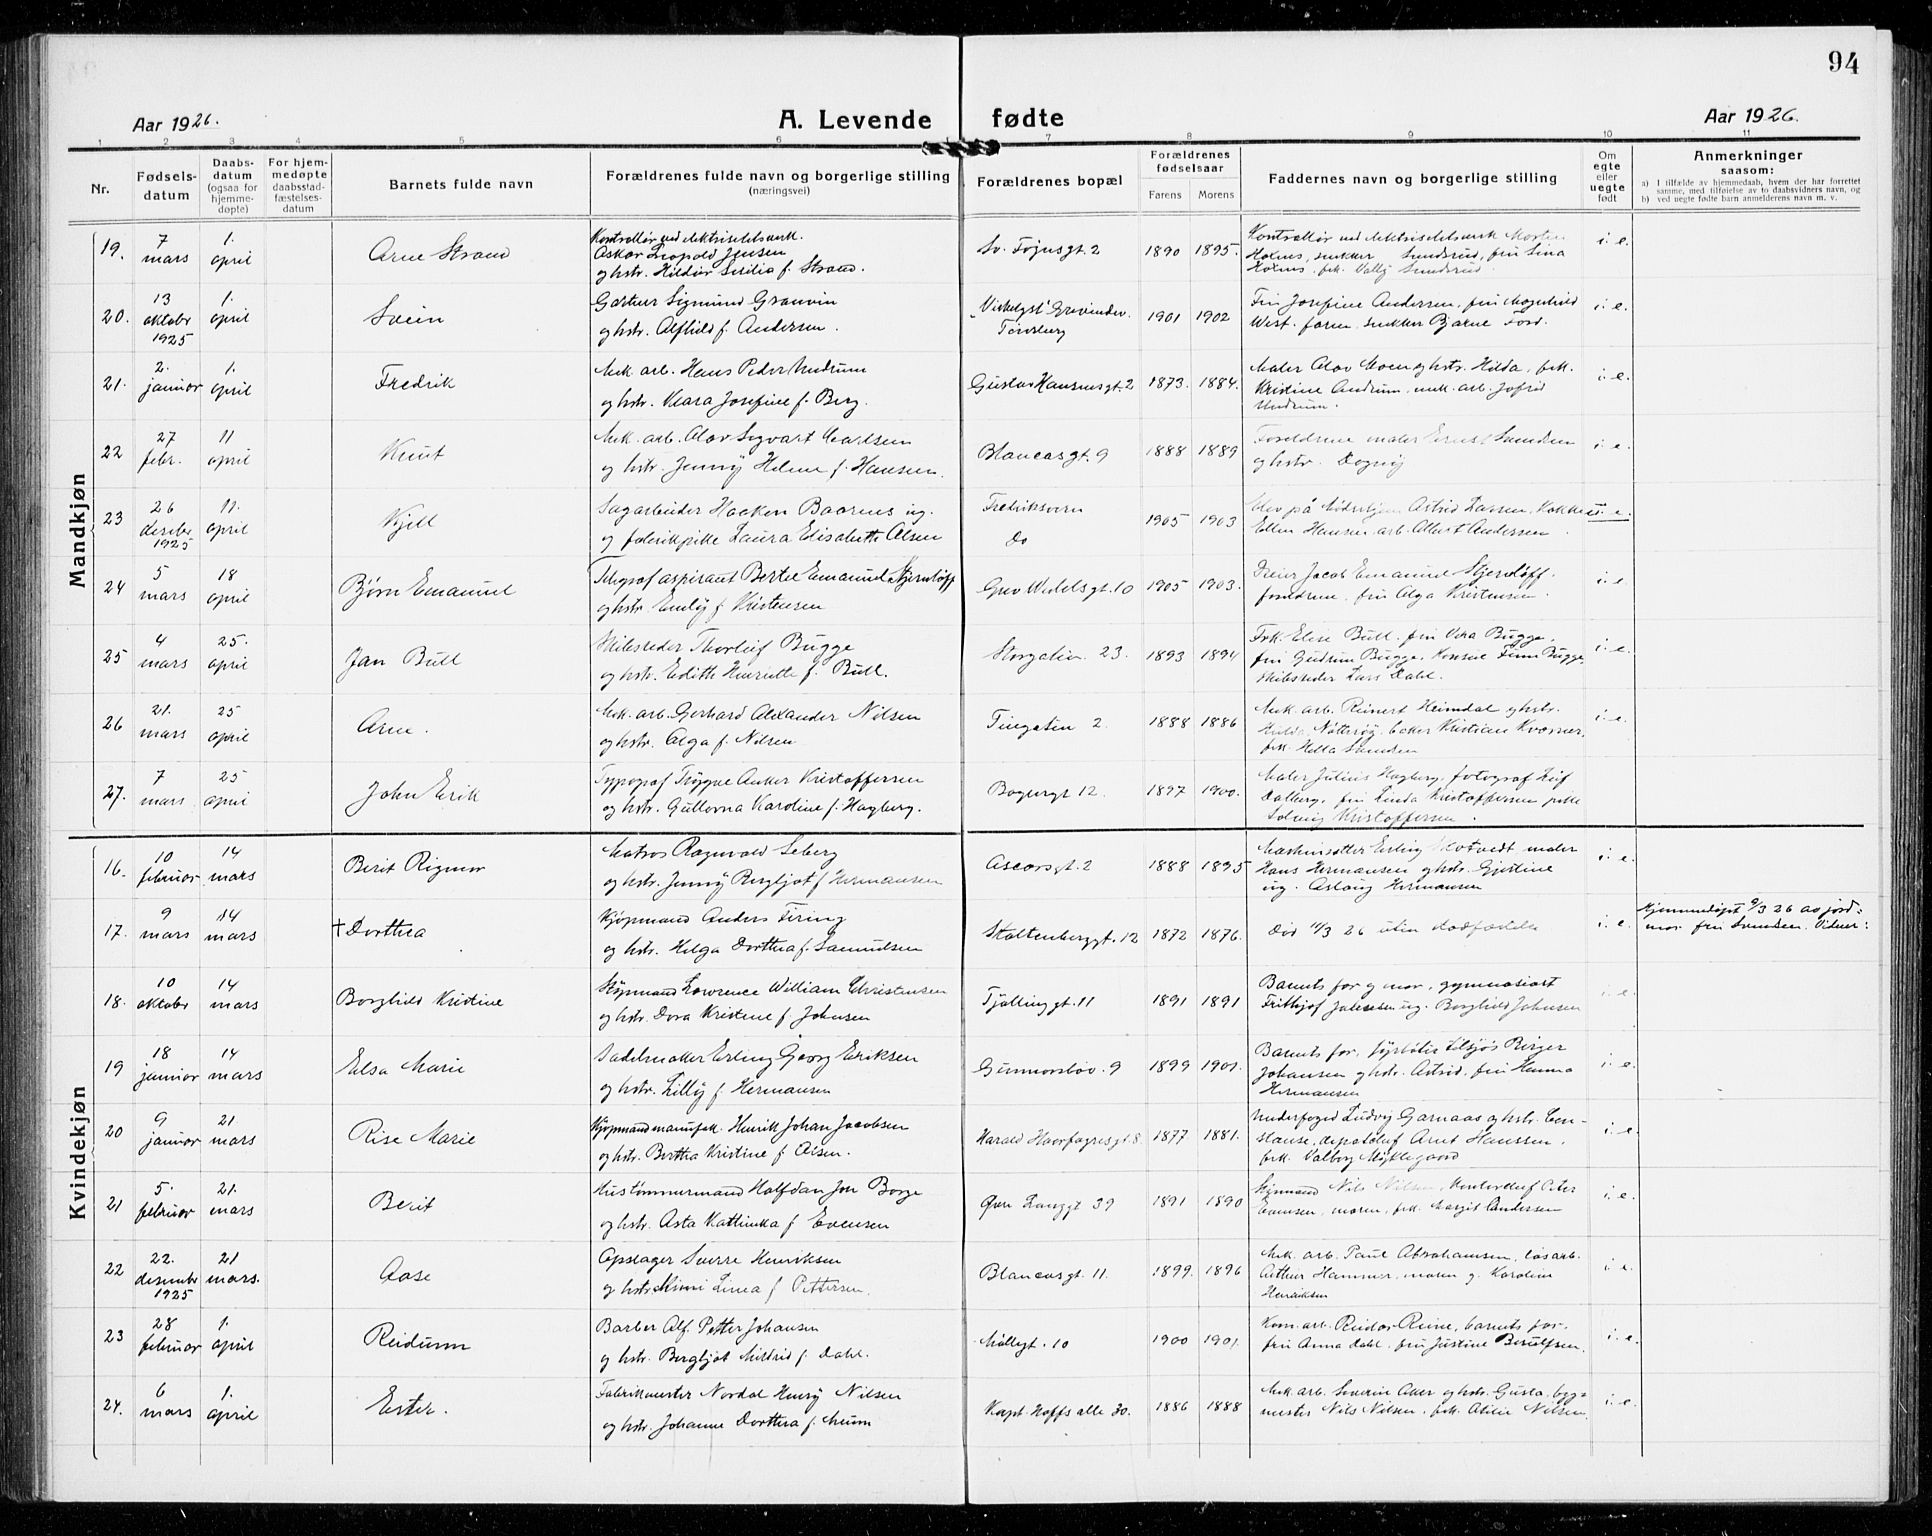 94
Aar 1926.
A. Levende fødte
Aar 1926.
1 2 3 4 5 6 7 8 9 10 11
Nr.
Fødsels-
datum
Daabs-
datum
(ogsaa for
hjemme-
døpte)
For hjem-
medøpte
daabsstad-
fæstelses-
datum
Barnets fulde navn
Forældrenes fulde navn og borgerlige stilling
(næringsvei)
Forældrenes bopæl
Forældrenes
fødselsaar
Farens Morens
Faddernes navn og borgerlige stilling
Om
egte
eller
uegte
født
Anmerkninger
saasom:
a) I tilfælde av hjemmedaab, hvem der har forrettet
samme, med tilføielse av to daabsvidners navn, og
b) ved uegte fødte barn anmelderens navn m. v.
Mandkjøn
19. 7 mars 1. april Arne Strand
Kontrollør ved elektrisitetsverk.
Oskar Leopold Jensen
og hstr. Hildur Sesilia f. Strand.
Sv. Føynsgt. 2 1890 1895.
Kontrollør ved elektrisitetsverk
Holms, snekker Sundsrud, fru Lina
Holms, frk. Sundsrud.
i. e.
20. 13 oktobr 1925 1. april Svein
Gartner Sigmund Granvin
og hstr. Alfhild f. Andersen.
Tønsberg 1901 1902
Fru Josefine Andersen, fru
West. faren, snekker Bjarne
i. e.
21. 2. januar 1. april Fredrik
Mek. arb. Hans Peder Undrum
og hstr. Klara Josefine f. Berg.
Gustav Hansensgt. 2 1873. 1884.
Maler Olav Moen og hstr. Hilda, frk.
Kristine Undrum, mek. arb.
Undrum.
i. e.
22 27 febr. 11 april Knut
Mek. arb. Olav Sigvart Karlsen
og hstr. Jenny Helene f. Hansen.
Blancasgt. 9 1888 1889
Foreldrene maler Ernst Svendsen
og hstr. Dagny
i. e.
23 26 desbr. 1925 11. april Kjell
Sagarbeider Haakon Baarnes ug.
og fabrikpike Laura Elisabeth Olsen
Fredriksvern
Do 1905 1903
Astrid Larsen,
Ellen Hansen arb. Albert Andersen
u. e.
24 5 mars 18 april Bjørn Emanuel
Telegraf aspirant Bertel Emanuel Stjernløff
og hstr. Emly f. Kristensen
Grev Wedelsgt. 10 1905 1903.
Jacob Emanuel Stjernløff.
foreldrene, fru Olga Kristensen.
i. e.
25 4 mars 25. april Jan Bull
Skibsreder Thorleif Bugge
og hstr. Edith Henriette f. Bull.
Storgaten 23. 1893 1894
Frk. Elise Bull. fru Vera Bugge,
fru Gudrun Bugge, Konsul Finn Bugge
skibsreder Lars Dahl.
i. e.
26 21. mars 25 april Arne.
Mek. arb. Gerhard Alexander Nilsen
og hstr. Olga f. Nilsen
Tingaten 2. 1888 1886
Mek. arb. Reinert Heimdal og hstr.
Hilda Nøtterøy, baker Kristian
frk. Svendsen
i. e.
27. 7 mars 25 april John Erik
Typograf Trygve Anker Kristoffersen
og hstr. Gullovna Karoline f. Hagberg.
Baglergt 12. 1897 1900.
Maler Julius Hagberg, fotograf Leif
Dalberg, fru Linda Kristoffersen
Solveig Kristoffersen.
Kvindekjøn
16. 10 februar 14 mars Berit Rigmor
Matros Ragnvald Seberg
og hstr. Jenny Bergljot f. Hermansen
Ascersgt. 2 1888 1895
Maskinsetter Erling maler
Hans Hermansen og hstr.
ug. Aslaug Hermansen
i. e.
17. 9 mars 14 mars † Dorthea
Kjøpmand Anders Firing
og hstr. Helga Dorthea f. Samuelsen
Stoltenberggt. 12 1872 1876.
Død 11/3 26 uten daafæstelse
i. e.
Hjemmedøpt 9/3 26 av jord-
mor fru Svendsen. Vidner:
18. 10 oktobr 14 mars Borghild Kristine
Skipmand Lawrence William Christensen
og hstr. Dora Kristine f. Johnsen
Tjøllinggt. 11 1891 1891
Barnets far og mor, gymnasiast
Frithjof Johnsen ug. Borghild Johnsen
i. e.
19 18 januar 14 mars Elsa Marie
Sadelmaker Erling Georg Eriksen
og hstr. Lilly f. Hermansen
Gunnarsbøv. 9 1899 1901.
Barnets far, fyrbøter Birger
Johansen og hstr. Astrid. fru Hanna
Hermansen
i. e.
20 9 januar 21 mars Rise Marie
Kjøpmand manufak. Henrik Johan Jacobsen
og hstr. Berthea Kristine f. Olsen.
Harald Haarfagresgt. 8. 1877 1881.
Underfoged Ludvig Garnaas og hstr. Con-
stanse, Arnt Hanssen,
frk. Valborg Myklegaard
i. e.
21 5. februar 21. mars Berit
Hustømmermand Halfdan Jon Borge
og hstr. Asta Kathinka f. Evensen
Øvre Langgt 39 1891 1890
Skipmand Nils Nilsen, Peter
Evensen, moren, frk. Margit Andersen
i. e.
22 22. desembr 1925 21 mars. Aase
Opslager Sverre Henriksen
og hstr. Mimi Linea f. Pettersen.
Blancasgt. 11. 1899. 1896
Mek. arb. Paul Abrahamsen, løsarb.
Arthur Hammer, moren g. Karoline
Henriksen
i. e.
23 28 februar 1. april Reidunn
Barber Alf. Petter Johansen
og hstr. Bergljot Mildrid f. Dahl.
Møllegt. 10 1900 1901.
Kom. arb. Reidar Ruine, barnets far.
fru Anna Dahl. fru Justine Berulfsen.
i. e.
24. 6 mars 1. april Ester.
Fabrikmester Nordal Henry Nilsen
og hstr. Johanne Dorthea f. Meum
Kapt. Hoffs alle 30. 1886 1888
Mek. arb. Severin Aker og hstr. Gusta. byg-
mester Nils Nilsen. frk. Otilie Nilsen.
i. e.